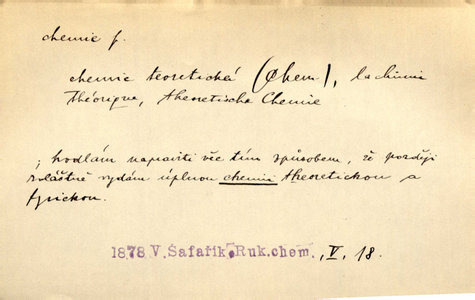 chemie f.
chemie teoretická (Chem.), la chimie
théorique, theoretische Chemie
; hodlám napraviti věc tím způsobem, že později
zvláštně vydám úplnou chemii theoretickou a
fysickou.
1878 V. Šafařík Ruk. chem., V, 18.